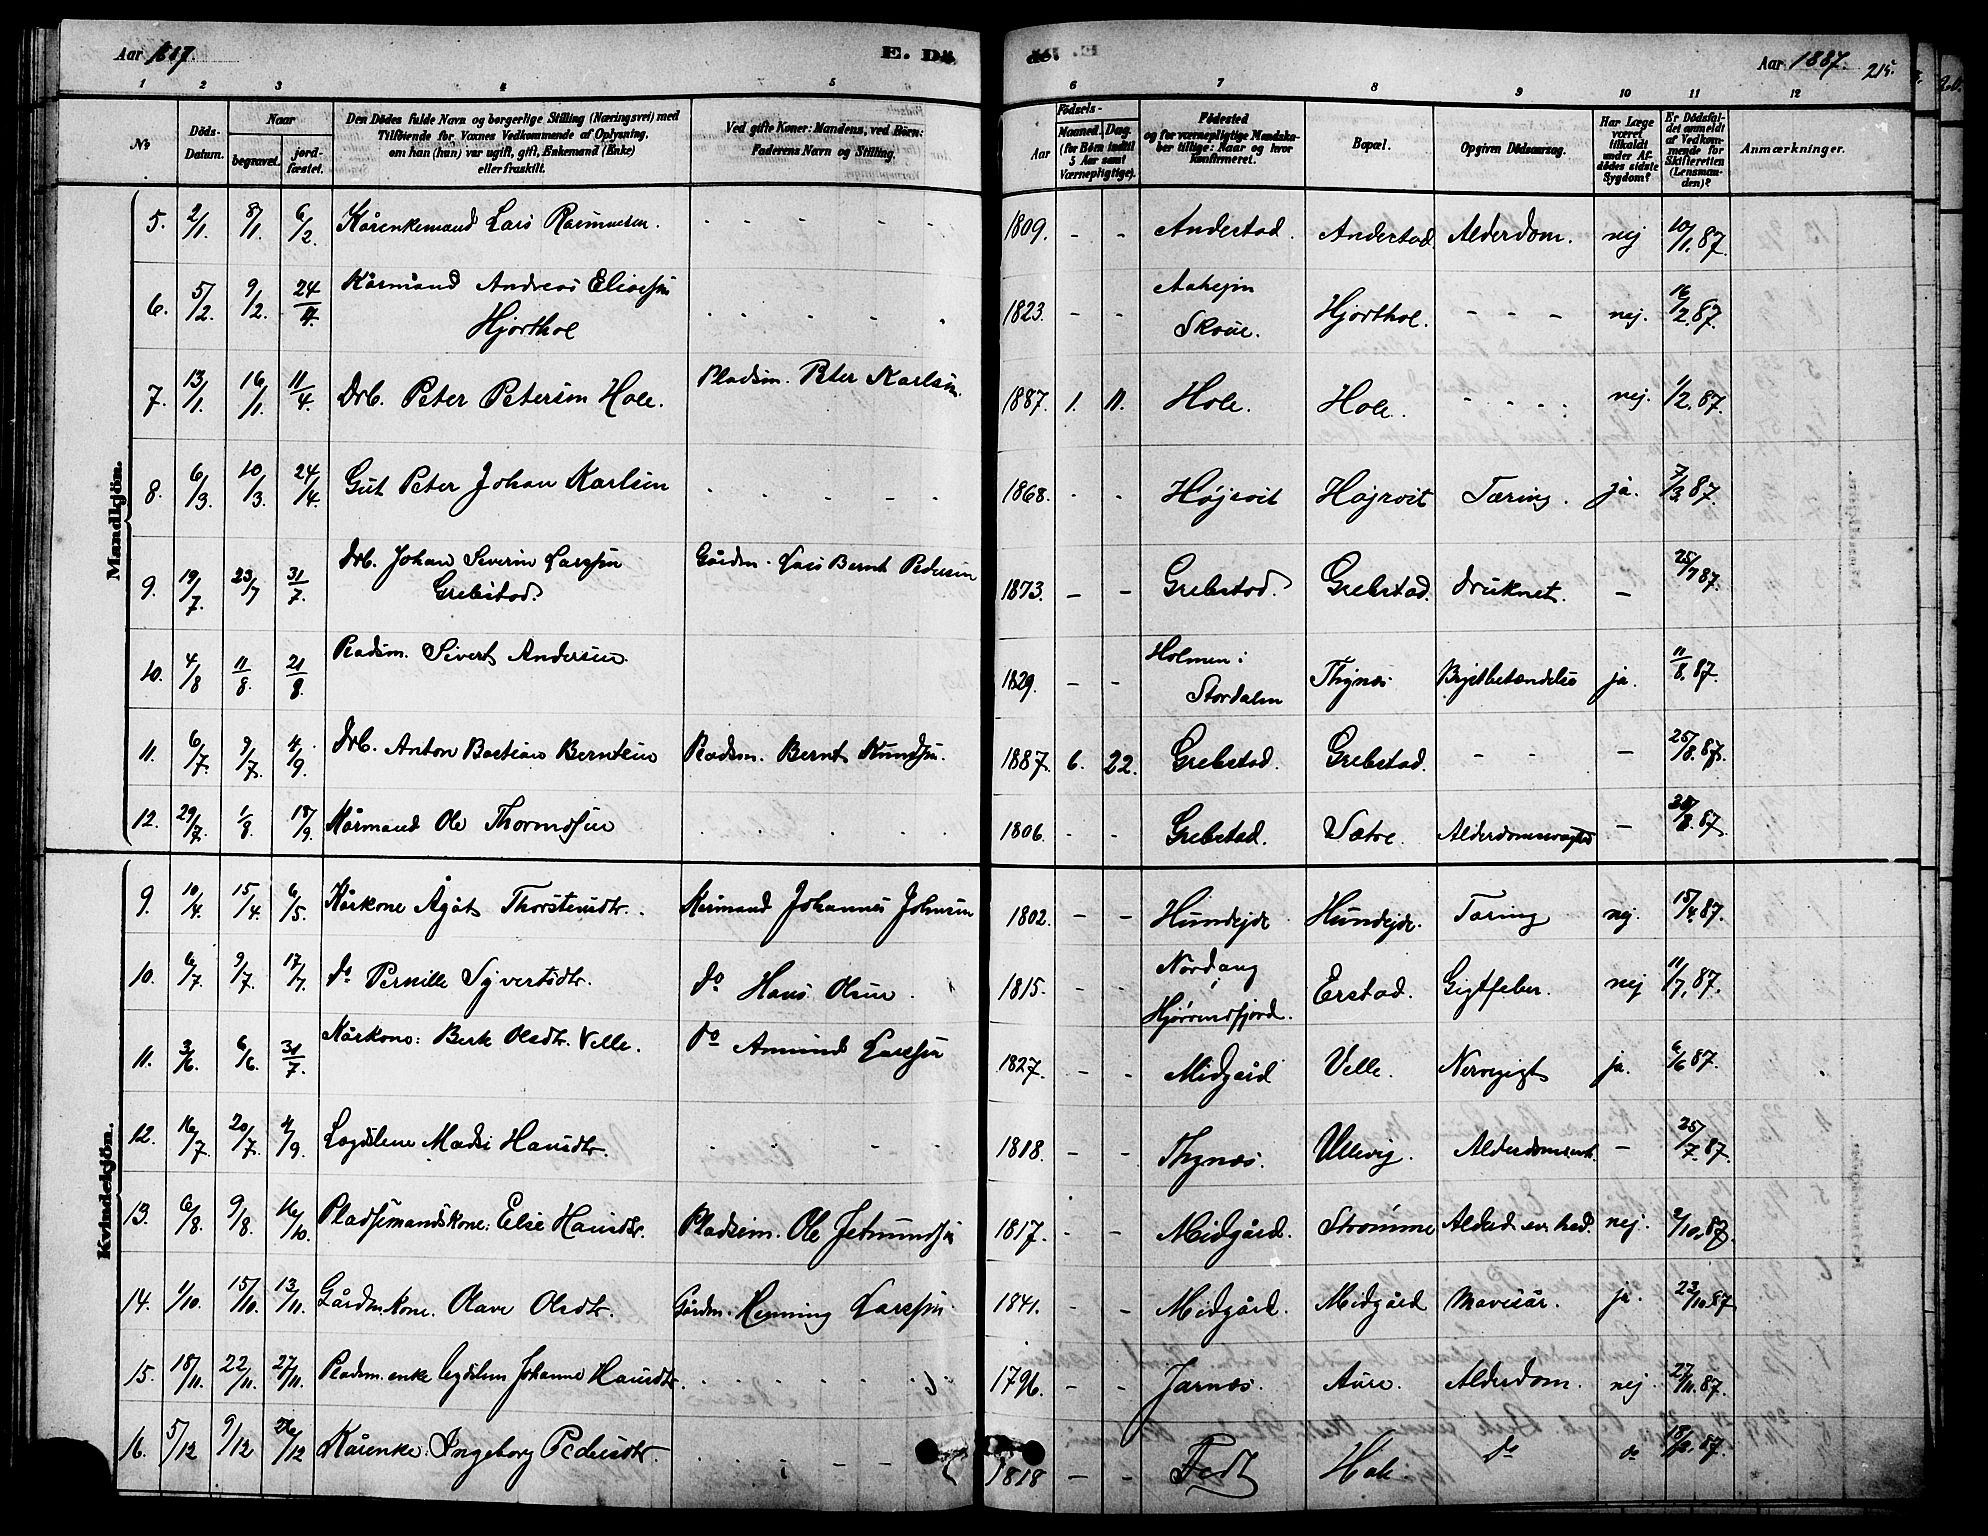 Aar 1887. E. Dö
de. Aar 1887. 215.
1 2 3 4 5 6 7 8 9 10 11 12
No
Döds-Datum.
Naar
begravet.
jord-fæstet.
Den Dödes fulde Navn og borgerlige Stilling (Næringsvei) med
Tilföiende for Voxnes Vedkommende af Oplysning,
om han (hun) var ugift, gift, Enkemand (Enke)
eller fraskilt.
Ved gifte Koner: Mandens, ved Börn:
Faderens Navn og Stilling.
Aar
Födsels-
Maaned. Dag.
(for Börn indtil
5 Aar samt
Værnepligtige).
Födested
og for værnepligtige Mandska-
ber tillige: Naar og hvor
Konfirmeret.
Bopæl.
Opgiven Dödsaarsag.
Har Læge
været
tilkaldt
under Af-
dödes sidste
Sygdom?
Er Dödsfal-
det anmeldt
af Vedkom-
mende for
Skifteretten
(Lensman-
den)?
Anmærkninger.
Mandkjön.
5. 2/1. 8/1. 6/2. Kårenkemand Lars Rasmussen. - - - - - 1809. - - Andestad. Andestad Alderdom. nej 10/1. 87.
6. 5/2. 9/2. 24/4. Kårmand Andreas Eliassen
Hjorthol 1823. - - Aahejm
Skoue. Hjorthol. - - - nej. 16/2. 87.
7. 13/1. 16/1. 11/4. Drb. Peter Petersen Hole. Pladsm. Peter Karlsen. 1887. 1. 11. Hole. Hole. - - - - nej. 1/2. 87.
8. 6/3. 10/3. 24/4. Gut Peter Johan Karlsen 1868. - - Højsvit Højsvit Tæring. ja. 7/3 87.
9. 19/7. 23/7 31/7. Drb. Johan Severin Larssen
Grebstad. Gårdm. Lars Bernt Pedersen 1873. - - Grebstad. Grebstad. Druknet. - 25/7 87.
10. 4/8 11/8. 21/8. Pladsm. Sivert Andersen. 1829. - - Holmen i
Stordalen Thynæs Brystbetændelse ja. 11/8. 87.
11. 6/7. 9/7. 4/9. Drb. Anton Bastian Berntsen Pladsm. Bernt Knudsen. 1887. 6. 22. Grebstad. Grebstad. - - - 25/8. 87.
12. 29/7. 1/8. 18/9. Kårmand Ole Thormodsen 1806. - - Grebstad. Sætre Alderdomssvaghed - 28/8. 87.
Kvindekjön.
9. 10/4. 15/4. 6/5. Kårkone Ågåt Thorstensdtr. Kårmand Johannes Johnsen 1802. - - Hundejde Hundejde. Tæring nej 15/4. 87.
10. 6/7. 9/7. 17/7. do Pernille Syvertsdtr. do Hans Olsen. 1815. - - Nordang
Hjørrendfjord. Erstad. Gigtfeber. nej 11/7. 87.
11. 3/6. 6/6. 31/7. Kårkone: Berte Olsdtr. Velle. do Amund Larssen 1827. - - Midgård Velle. Nervegigt ja. 6/6 87.
12. 16/7. 20/7. 4/9. Lægdslem Madsi Hansdtr. - - - - 1818. - - Thynæs. Ullavig. Alderdomssvh. - 25/7. 87.
13. 6/8. 9/8. 16/10. Pladsemandskone: Else Hansdtr. Pladsem. Ole Jetmundsen 1817. - - Midgård. Strømme Alderd. sv. hed. nej. 2/10. 87.
14. 9/10. 15/10. 13/11. Gårdm. kone. Olave Olsdtr. Gårdm. Henning Larssen. 1841. - - Midgård. Midgård Mavesår. ja. 23/10. 87
15. 18/11. 22/11. 27/11. Pladsm. enke lægdslem Johanne Hansdtr. 1796. - - Jarnæs. Aure. Alderdom. nej 27/11. 87.
16. 5/12 9/12 26/12 Kårenke. Ingeborg Pedersdtr. 1818 - - Fedt Hole do do 18/12. 87.